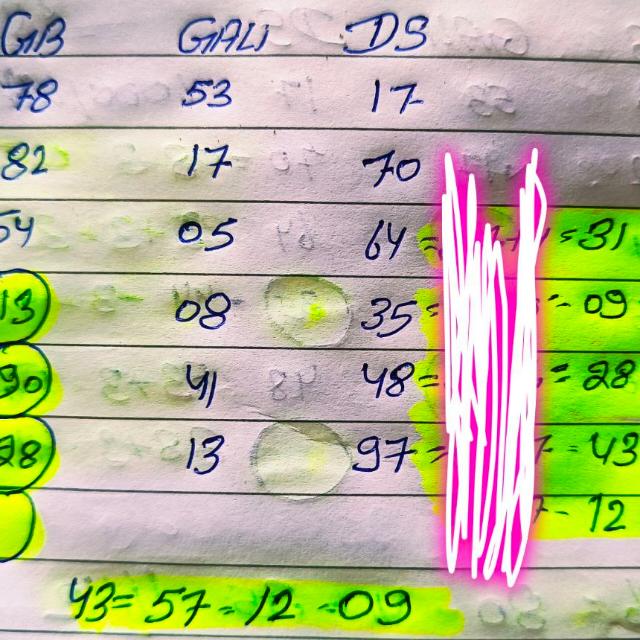 GB GALI DS
78 53 17
82 17 70
54 05 64 = = 31
13 08 35 = 09
90 41 48 = = 28
28 13 97 = 7 - 43
7 - 12
43 = 57 - 12 - 09